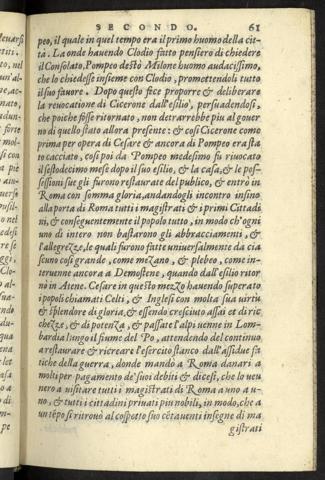 SECONDO. 61
peo, il quale in quel tempo era il primo huomo della cit-
tà. La onde havendo Clodio fatto pensiero di chiedere
il Consolato, Pompeo destò Milone huomo audacissimo,
che lo chiedesse insieme con Clodio, promettendoli tutto
il suo favore. Dopo questo fice proporre & deliberare
la revocatione di Cicerone dall'esilio, persuadendosi,
che poiche fosse ritornato, non detrarrebbe piu al gover
no di quello stato allora presente: & cosi Cicerone come
prima per opera di Cesare & ancora di Pompeo era sta
to cacciato, cosi poi da Pompeo medesimo fu rivocato
il sestodecimo mese dopo il suo esilio, & la casa, & le pos-
sessioni sue gli furono restaurate del publico, & entrò in
Roma con somma gloria, andandogli incontro insino
alla porta di Roma tutti i magistrati & i primi Cittadi
ni, & conseguentemente il popolo tutto, in modo ch'ogni
uno di intero non bastarono gli abbracciamenti, &
l'allegrezze, le quali furono fatte universalmente da cia
scuno cosi grande, come mezano, & plebeo, come in-
tervenne ancora a Demostene, quando dall'esilio ritor
nò in Atene. Cesare in questo mezzo havendo superato
i popoli chiamati Celti, & Inglesi con molta sua virtù
& splendore di gloria, & essendo cresciuto assai et di ric
chezze, & di potenza, & passate l'alpi venne in Lom-
bardia lungo il fiume del Po, attendendo del continuo
a restaurare & ricreare l'esercito stanco dall'assidue fa
tiche della guerra, donde mandò a Roma danari a
molti per pagamento de' suoi debiti & dicesi, che lo ven
nero a visitare tutti i magistrati di Roma a uno a u-
no, & tutti i cittadini privati piu nobili, in modo, che a
un tẽpo si ritrovò al cospetto suo cẽtoventi insegne di ma
gistrati